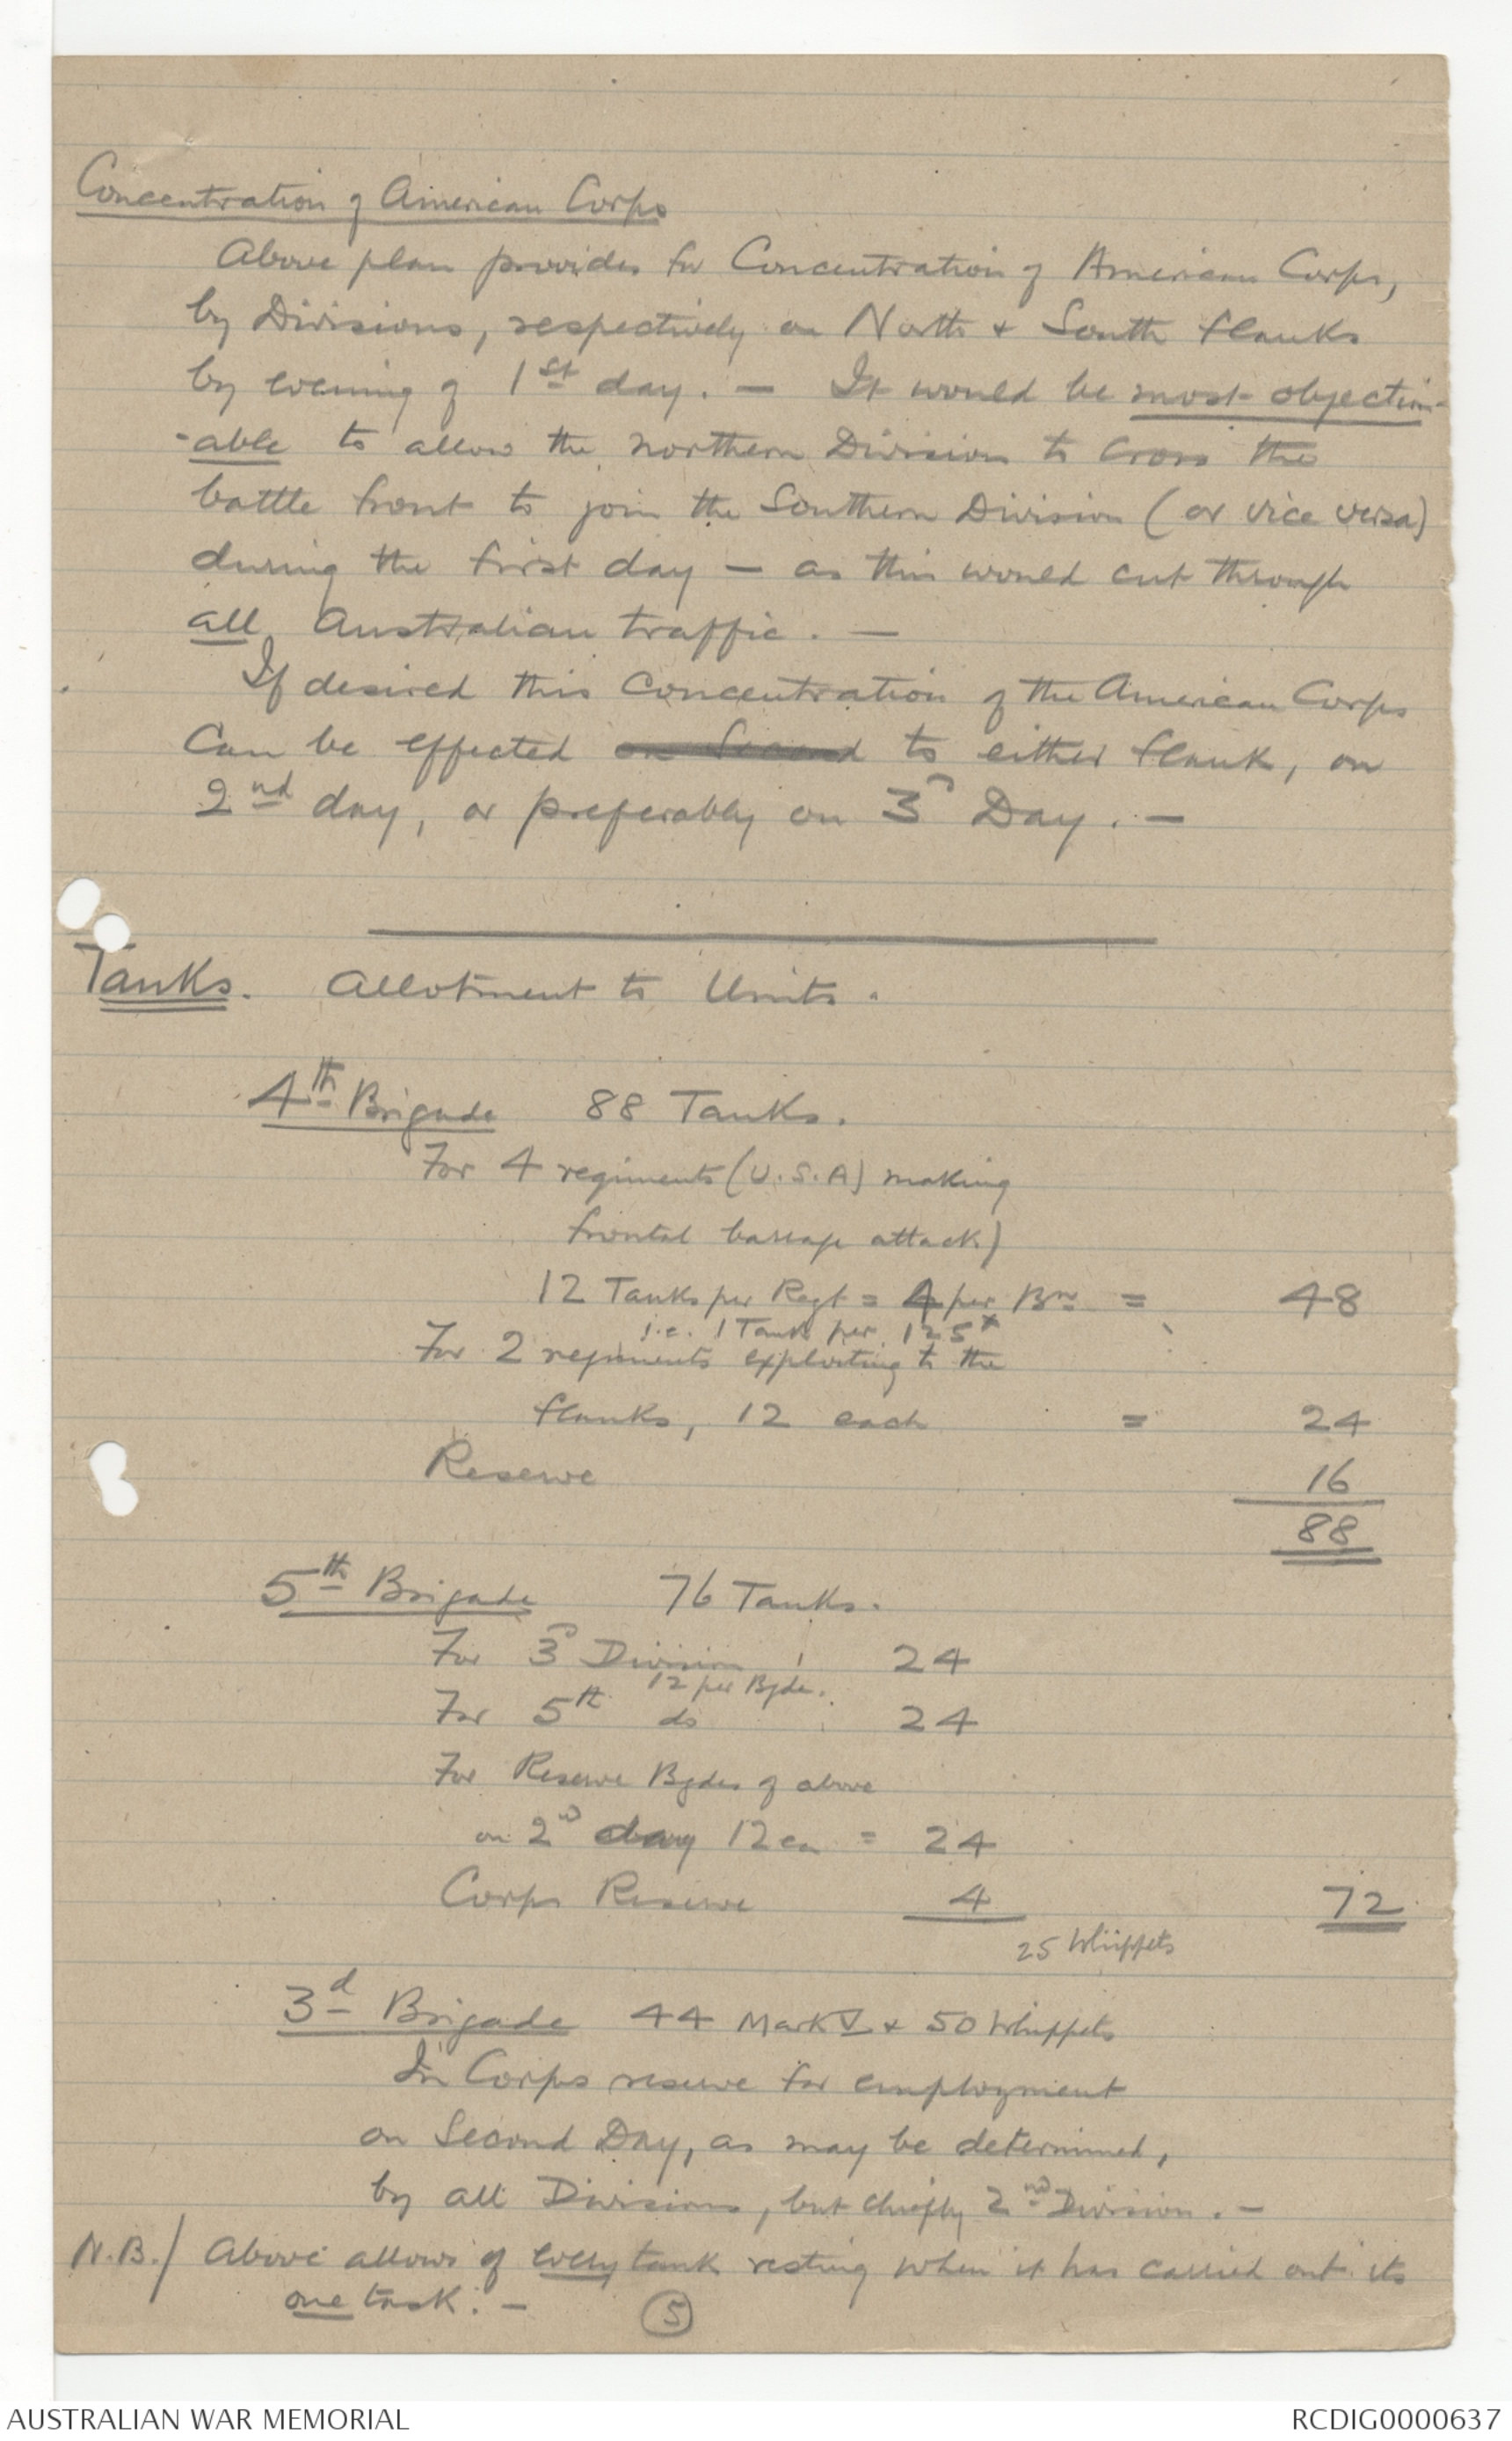 Concentration of American Corps
Above plan provides for Concentration of American Corps,
by Divisions, respectively on North & South flanks
by evening of 1st day. — It would be most objection-
-able to allow the northern Division to cross the
battle front to join the Southern Division (or vice versa)
during the first day — as this would cut through
all Australian traffic. —
If desired this Concentration of the American Corps
Can be effected on Second to either flank, on
2nd day, or preferably on 3rd Day. —
Tanks. Allotment to Units.
4th Brigade 88 Tanks.
For 4 regiments (U.S.A) making
frontal barrage attack)
12 Tanks per Regt = 4 per Bn = 48
i.e. 1 Tank per 125x
For 2 regiments exploiting to the
flanks, 12 each = 24
Reserve 16
88
5th Brigade 76 Tanks.
For 3rd Division 24
12 per Bgde.
For 5th do 24
For Reserve Bgdes of above
on 2nd day 12 ea = 24
Corps Reserve 4 72
25 Whippets
3d Brigade 44 Mark V & 50 Whippets
In Corps reserve for employment
on Second Day, as may be determined,
by all Divisions, but chiefly 2nd Division. —
N.B./ Above allows of every tank resting when it has carried out its
one task. —
5
AUSTRALIAN WAR MEMORIAL
RCDIG0000637